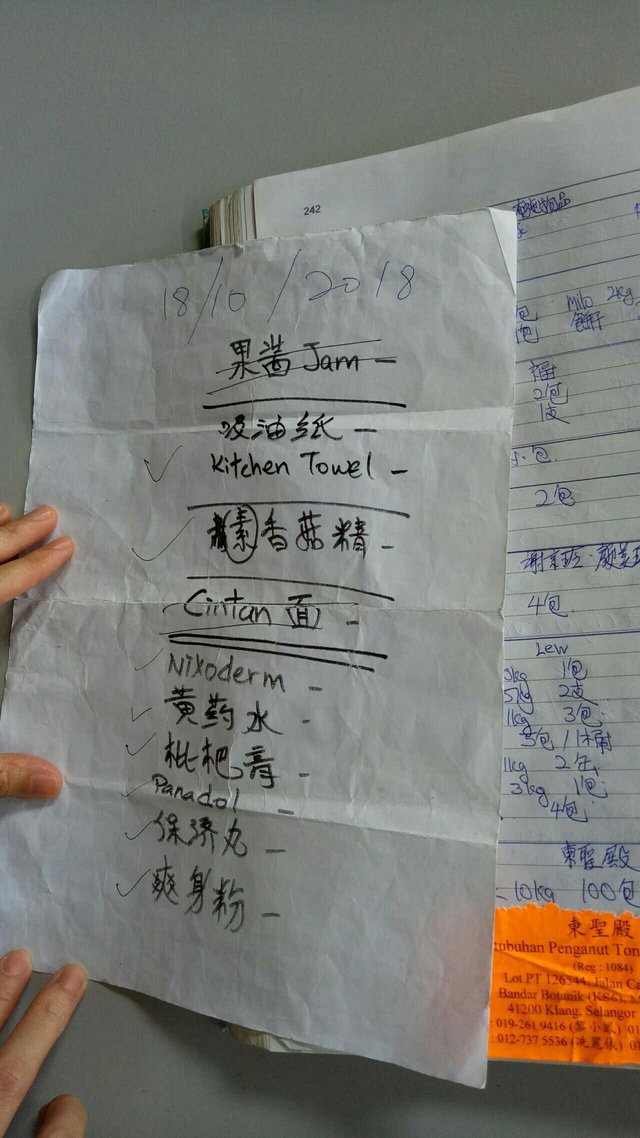 242
18/10/2018
果酱 Jam -
吸油纸 -
Kitchen Towel -
素香菇精 -
Cintan 面 -
Nixoderm -
黄药水 -
枇杷膏 -
Panadol -
保济丸 -
爽身粉 -
包 Milo 2kg
包
桶
2包
1支
小包
2包
4包
Lew
1包
5kg 2支
1kg 3包
5包 / 1桶
1kg
3kg 1包
4包
東聖殿
10kg 100包
東聖殿
tubuhan Penganut Ton
(Reg : 1084)
Lot PT 126544, Jalan Ca
Bandar Botanik (KS6),
41200 Klang, Selangor
: 019-261 9416 (黎小鳳) 01
: 012-737 5536 (冼麗儀) 01